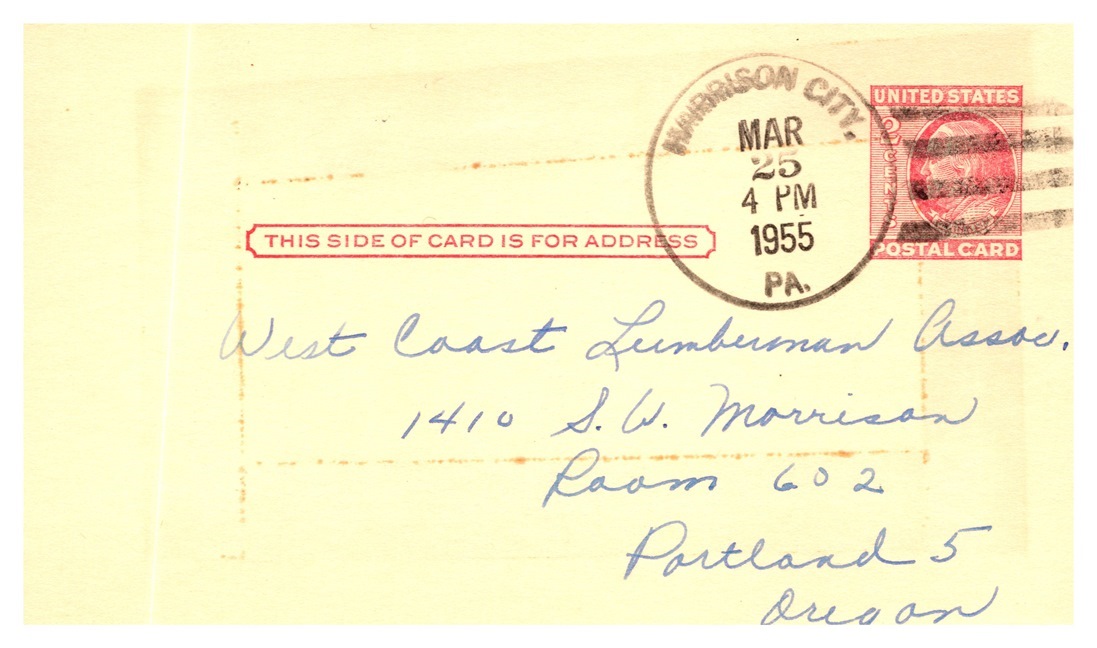 HARRISON CITY,
MAR
25
4 PM
1955
PA.
UNITED STATES
2 CENT
POSTAL CARD
THIS SIDE OF CARD IS FOR ADDRESS
West Coast Lumberman Assoc.
1410 S. W. Morrison
Room 602
Portland 5
Oregon